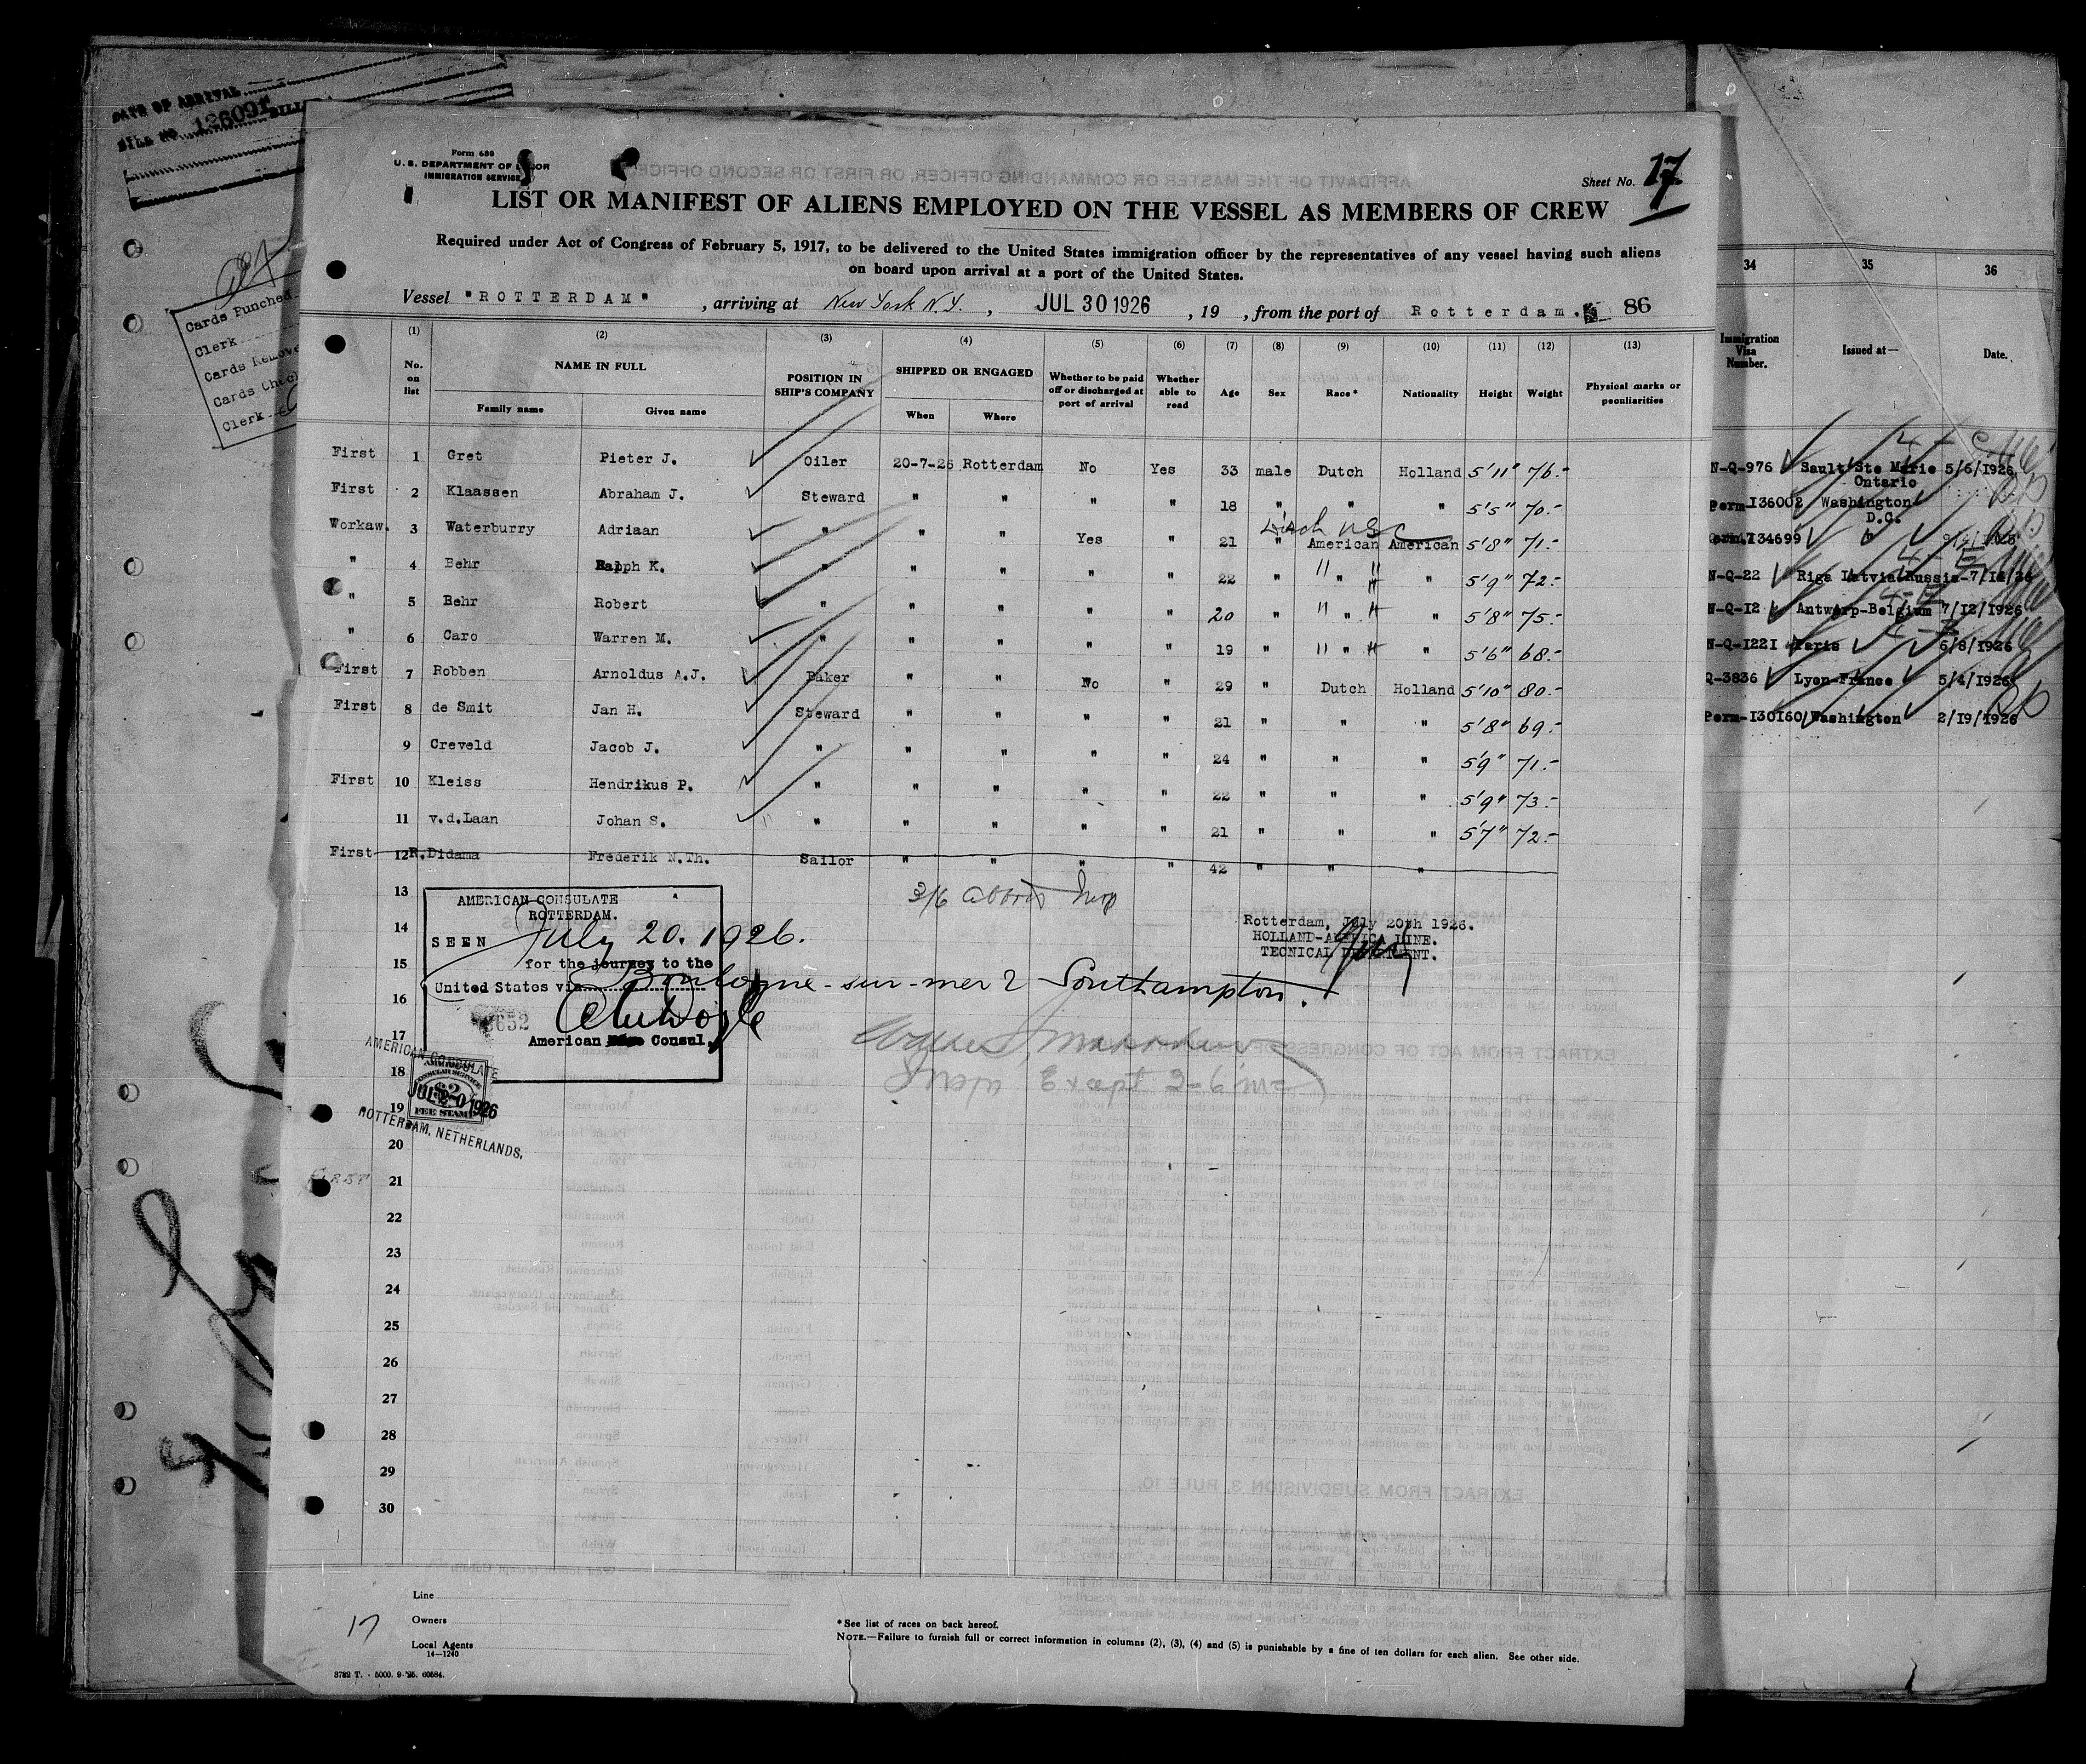 DATE OF ARRIVAL
BILL NO. 126091
Cards Punched
Clerk
Cards Remove
Cards Chec
Clerk
Form 680
U. S. DEPARTMENT OF LABOR
IMMIGRATION SERVICE
Sheet No. 17
LIST OR MANIFEST OF ALIENS EMPLOYED ON THE VESSEL AS MEMBERS OF CREW
Required under Act of Congress of February 5, 1917, to be delivered to the United States immigration officer by the representatives of any vessel having such aliens
on board upon arrival at a port of the United States.
Vessel "ROTTERDAM" , arriving at New York N.Y. , JUL 30 1926 , 19 , from the port of Rotterdam. 86
(1) (2) (3) (4) (5) (6) (7) (8) (9) (10) (11) (12) (13) 34 35 36
No. on list NAME IN FULL Family name Given name POSITION IN SHIP'S COMPANY SHIPPED OR ENGAGED When Where Whether to be paid off or discharged at port of arrival Whether able to read Age Sex Race* Nationality Height Weight Physical marks or peculiarities Immigration Visa Number. Issued at— Date.
First 1 Gret Pieter J. Oiler 20-7-26 Rotterdam No Yes 33 male Dutch Holland 5'11" 76.- N-Q-976 Sault Ste Marie Ontario 5/6/1926
First 2 Klaassen Abraham J. Steward " " " " 18 " " " 5'5" 70.- Perm-136002 Washington D.C.
Workaw. 3 Waterburry Adriaan " " " Yes " 21 " American American 5'8" 71.- 134699 "
" 4 Behr Ralph K. " " " " " 22 " " " 5'9" 72.- N-Q-22 Riga Latvia Russia-7/12/26
" 5 Behr Robert " " " " " 20 " " " 5'8" 75.- N-Q-12 Antwerp-Belgium 7/12/1926
" 6 Caro Warren M. " " " " " 19 " " " 5'6" 68.- N-Q-1221 Paris 6/8/1926
First 7 Robben Arnoldus A.J. Baker " " No " 29 " Dutch Holland 5'10" 80.- Q-3836 Lyon-France 5/4/1926
First 8 de Smit Jan H. Steward " " " " 21 " " " 5'8" 69.- Perm-130160 Washington 2/19/1926
9 Creveld Jacob J. " " " " " 24 " " " 5'9" 71.-
First 10 Kleiss Hendrikus P. " " " " " 22 " " " 5'9" 73.-
11 v.d.Laan Johan S. " " " " " 21 " " " 5'7" 72.-
First 12 R.Didama Frederik N.Th. Sailor " " " " 42 " " "
13
14
15
16
17
18
19
20
21
22
23
24
25
26
27
28
29
30
AMERICAN CONSULATE
ROTTERDAM.
SEEN July 20. 1926.
for the journey to the
United States via Boulogne-sur-mer & Southampton.
3652
American Consul.
AMERICAN CONSULATE
AMERICAN
CONSULAR SERVICE
$2
JUL 20 1926
FEE STAMP
ROTTERDAM, NETHERLANDS.
Rotterdam, July 20th 1926.
HOLLAND-AMERICA LINE.
TECNICAL DEPARTMENT.
Except 2-6 inc
17
Line
Owners
Local Agents
14—1240
3722 T. - 5000. 9-'25. 60584.
* See list of races on back hereof.
NOTE.—Failure to furnish full or correct information in columns (2), (3), (4) and (5) is punishable by a fine of ten dollars for each alien. See other side.